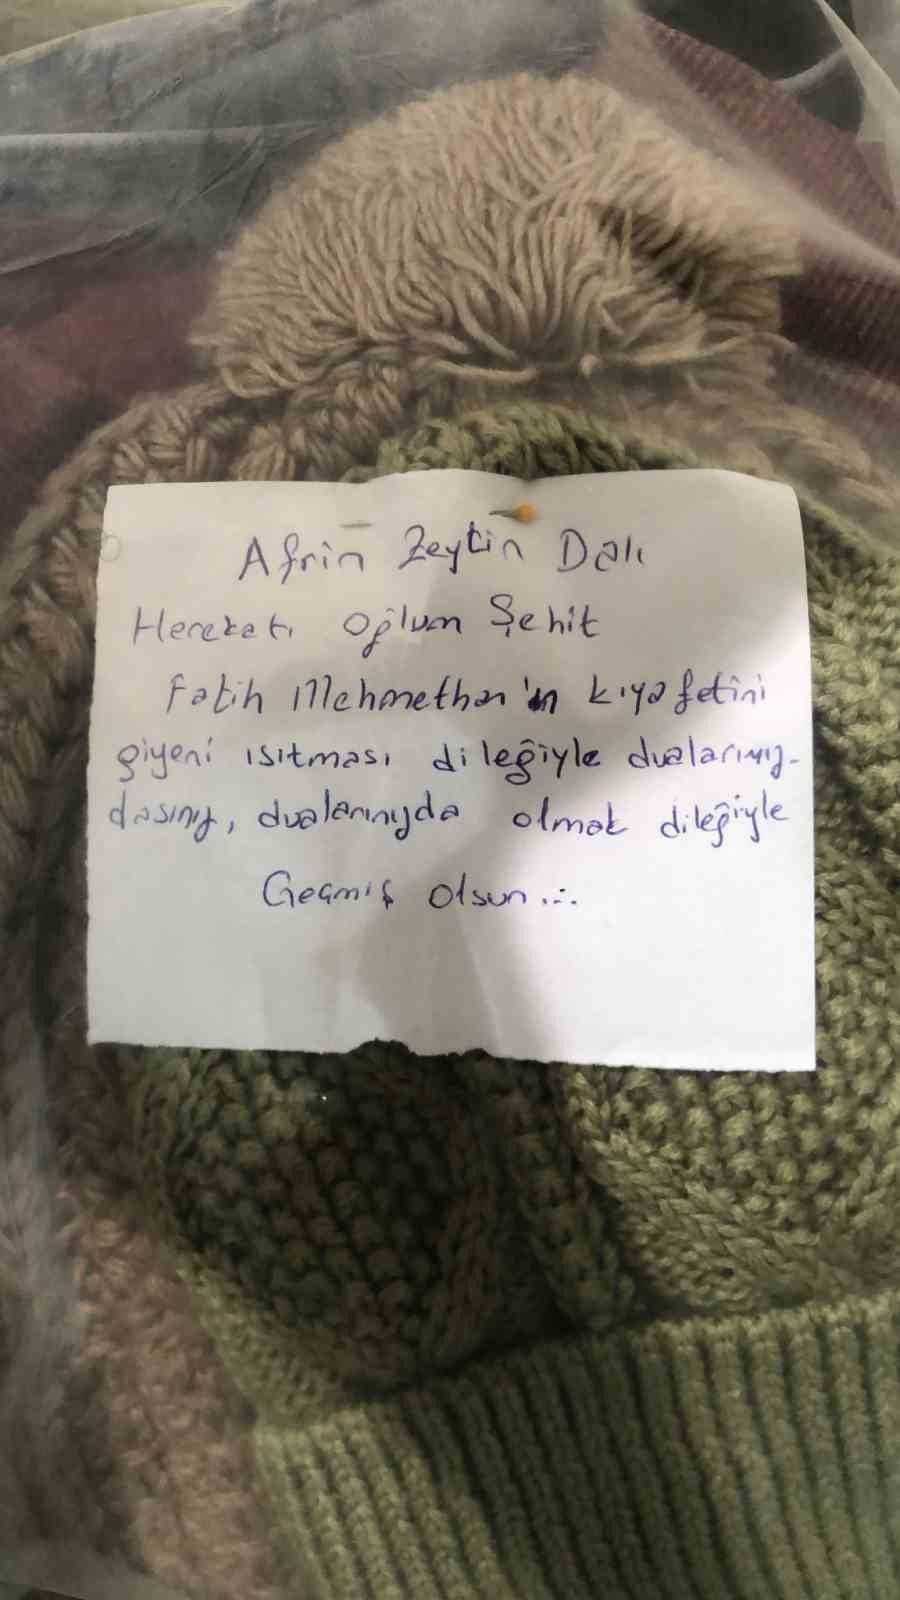 Afrin Zeytin Dalı
Herekatı Oğlum Şehit
Fatih Mehmethan'ın kıyafetini
giyeni ısıtması dileğiyle dualarımız-
dasınız, dualarınızda olmak dileğiyle
Geçmiş olsun...